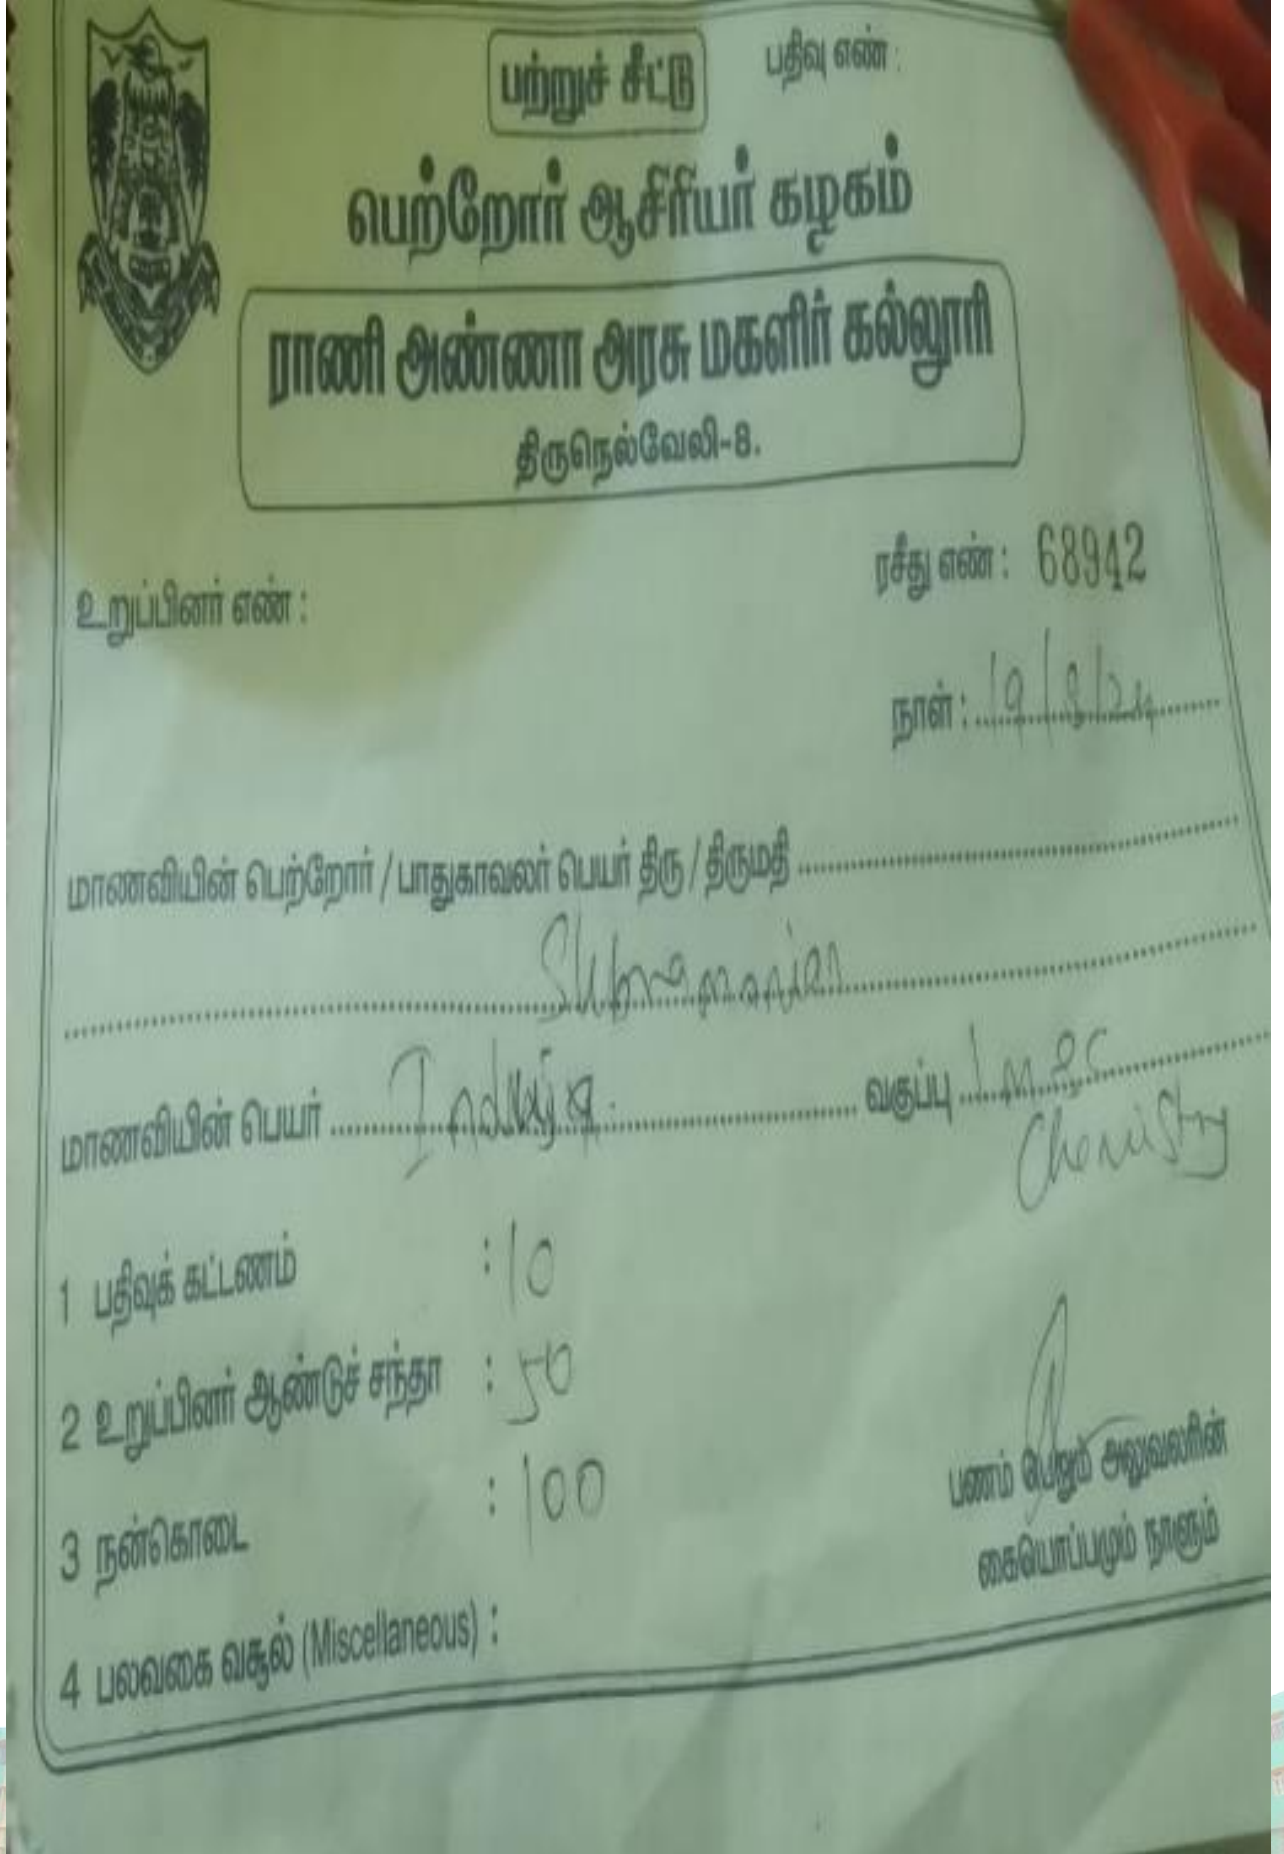 பற்றுச் சீட்டு
பதிவு எண் :
பெற்றோர் ஆசிரியர் கழகம்
ராணி அண்ணா அரசு மகளிர் கல்லூரி
திருநெல்வேலி-8.
ரசீது எண் : 68942
உறுப்பினர் எண் :
நாள் : 19/8/24
மாணவியின் பெற்றோர் / பாதுகாவலர் பெயர் திரு / திருமதி
Subramanian
மாணவியின் பெயர் Induja. வகுப்பு I MSC
Chemistry
1 பதிவுக் கட்டணம் : 10
2 உறுப்பினர் ஆண்டுச் சந்தா : 50
3 நன்கொடை : 100
4 பலவகை வசூல் (Miscellaneous) :
பணம் பெறும் அலுவலரின்
கையொப்பமும் நாளும்